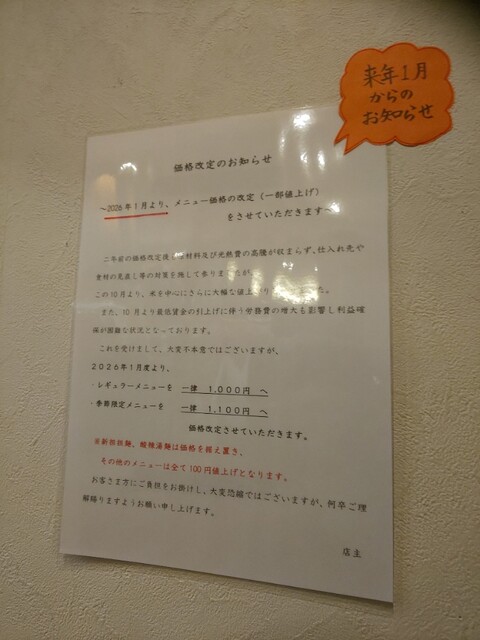 来年1月
からの
お知らせ
価格改定のお知らせ
～2026年1月より、メニュー価格の改定（一部値上げ）
をさせていただきます～
二年前の価格改定後 材料及び光熱費の高騰が収まらず、仕入れ先や
食材の見直し等の対策を施して参りましたが、
この10月より、米を中心にさらに大幅な値上
また、10月より最低賃金の引上げに伴う労務費の増大も影響し利益確
保が困難な状況となっております。
これを受けまして、大変不本意ではございますが、
2026年1月度より、
・レギュラーメニューを 一律 1,000円 へ
・季節限定メニューを 一律 1,100円 へ
価格改定させていただきます。
※新担担麺、酸辣湯麺は価格を据え置き、
その他のメニューは全て100円値上げとなります。
お客さま方にご負担をお掛けし、大変恐縮ではございますが、何卒ご理
解賜りますようお願い申し上げます。
店主